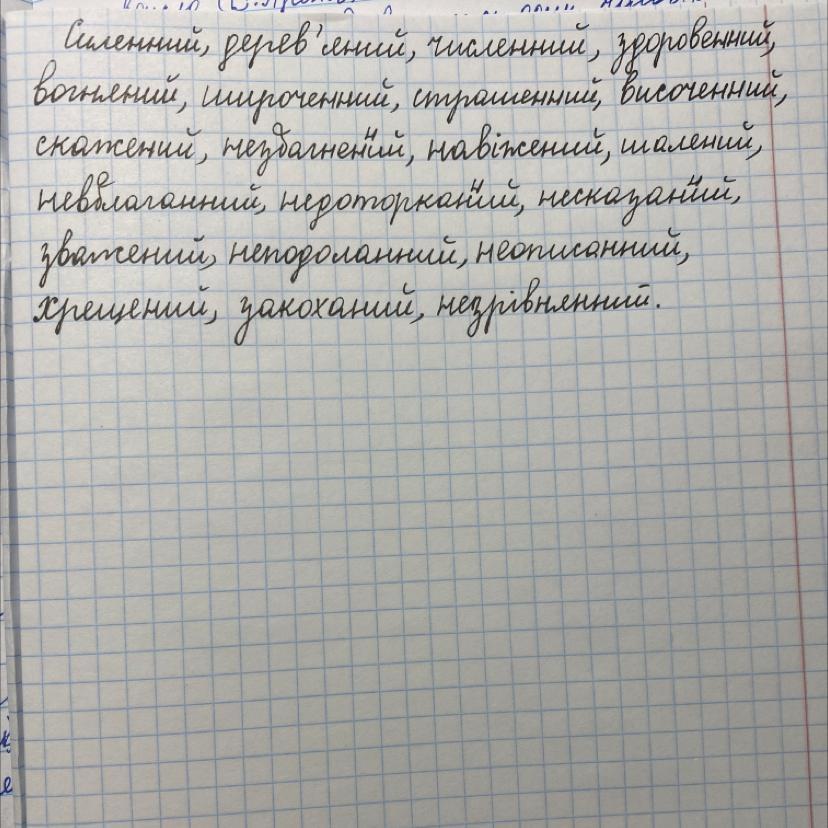 Силенний, дерев'яний, численний, здоровенний,
вогняний, широченний, страшенний, височенний,
скажений, незбагненний, навіжений, шалений,
невблаганний, недоторканний, несказанний,
зважений, неподоланний, неописанний,
хрещений, закоханий, незрівнянний.